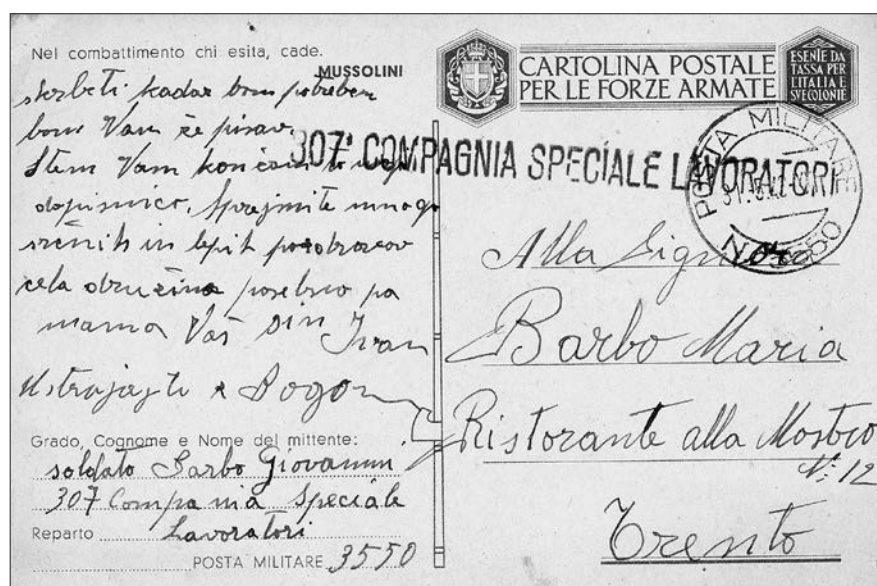 Nel combattimento chi esita, cade.
MUSSOLINI
skrbeti kadar bom potreben
bom Vam že pisav.
Stem Vam končam to mojo
dopisnico. Sprejmite mnogo
srčnih in lepih pozdravov
cela družina posebno pa
mama Vaš sin Ivan
Ustrajajte z Bogom
Grado, Cognome e Nome del mittente:
soldato Barbo Giovanni
307 Compania Speciale
Reparto Lavoratori
POSTA MILITARE 3550
CARTOLINA POSTALE
PER LE FORZE ARMATE
ESENTE DA
TASSA PER
L'ITALIA E
SUE COLONIE
307ª COMPAGNIA SPECIALE LAVORATORI
POSTA MILITARE
N. 3550
Alla Signora
Barbo Maria
Ristorante alla Mostro
N: 12
Trento